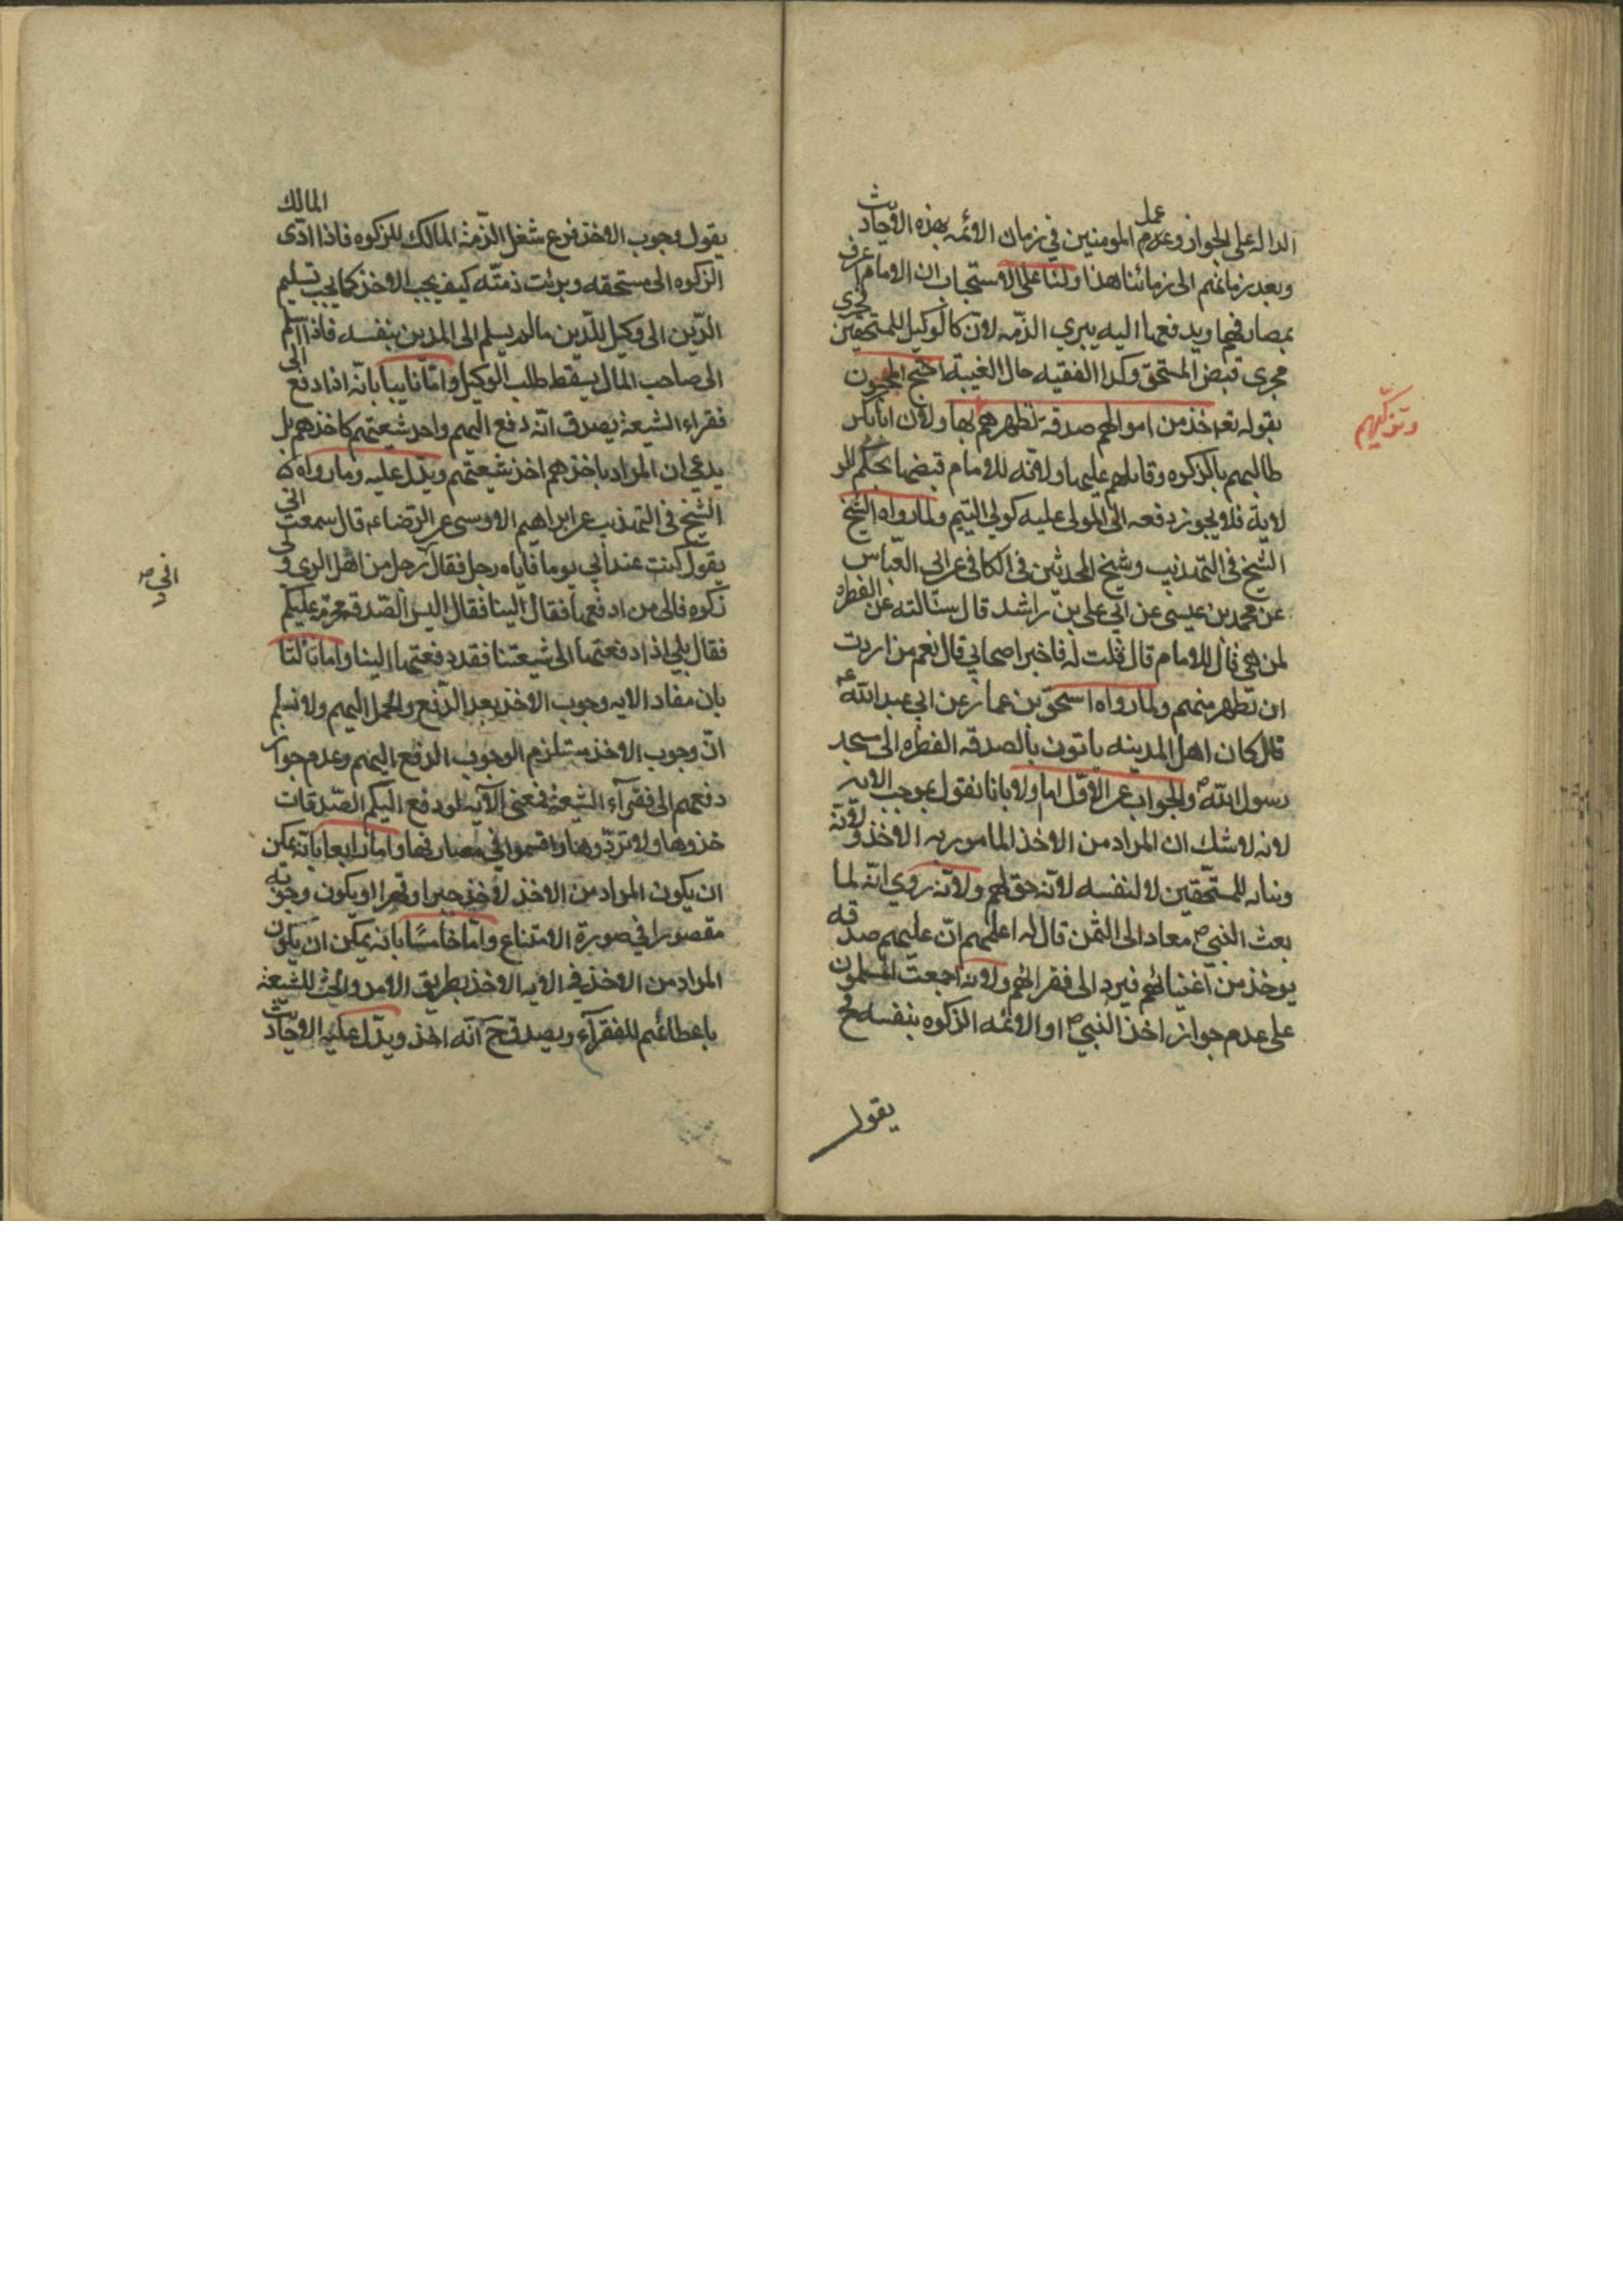 الداله على الجواز وعدم عمل المومنين في زمان الائمه بهذه الاحاديث
وبعد زمانهم الى زماننا هذا ولنا على الاستحباب ان الامام اعرف
بمصارفها ويدفعها اليه يبري الذمه لانه كالوكيل للمستحقين فجرى
مجرى قبض المستحق وكذا الفقيه حال الغيبة احتج الموجبون
بقوله تعه خذ من اموالهم صدقة تطهرهم بها ولان ابابكر
وتزكيهم
طالبهم بالزكوه وقاتلهم عليها ولانه للامام قبضها بحكم الو
لاية فلا يجوز دفعه الى المولى عليه كولي اليتيم ولما رواه الشيخ
الشيخ في التهذيب وشيخ المحدثين في الكافي عن ابي العباس
عن محمد بن عيسى عن ابي علي بن راشد قال سئالته عن الفطره
لمن هي قال للامام قال قلت له فاخبر اصحابي قال نعم من اردت
ان تطهر منهم ولما رواه اسحق بن عمار عن ابي عبد الله ع
قال كان اهل المدينه ياتون بالصدقه الفطره الى مسجد
رسول الله ص والجواب عن الاول اما اولا بانا نقول بموجب الايه
لانه لا شك ان المراد من الاخذ المامور به الاخذ ولانه
للمستحقين لا لنفسه لانه حق لهم ولانه روي انه لما
بعث النبي ص معاد الى اليمن قال له اعلمهم ان عليهم صدقه
يوخذ من اغنيائهم فيرد الى فقرائهم ولانه اجمعت المسلمون
على عدم جواز اخذ النبي ص او الائمه الزكوه بنفسه فح
يقول
يقول وجوب الاخذ فرع شغل الذمة المالك للزكوه فاذا ادى المالك
الزكوه الى مستحقه وبرئت ذمته كيف يجب الاخذ كما يجب تسليم
الدين الى وكيل للدين مالم يسلم الى المدين بنفسه فاذا اسلم
الى صاحب المال يسقط طلب الوكيل واما ثانيا بانه اذا دفع الى
فقراء الشيعة يصدق انه دفع اليهم واخذ شيعتهم كاخذهم بل
يدعي ان المراد باخذهم اخذ شيعتهم ويدل عليه وما رواه
الشيخ في التهذيب عن ابراهيم الاوسى عن الرضا ع قال سمعت ابي
يقول كنت عند ابي يوما فاتاه رجل فقال رجل من اهل الري ولي
اني ص
زكوه فالى من ادفعها فقال الينا فقال اليس الصدقه محرمة عليكم
فقال بلى اذا دفعتها الى شيعتنا فقد دفعتها الينا واما ثالثا
بان مفاد الايه وجوب الاخذ بعد الدفع والحمل اليهم ولا نسلم
ان وجوب الاخذ مستلزم الوجوب الدفع اليهم وعدم جواز
دفعهم الى فقرآء الشيعة فمعنى الآيه لو دفع اليكم الصدقات
خذوها ولا تردوها واقسموا في مصارفها واما رابعا بانه يمكن
ان يكون المراد من الاخذ لاخذ جبرا وقهرا او يكون وجوبه
مقصورا في صورة الامتناع واما خامسا بانه يمكن ان يكون
المراد من الاخذ في الايه الاخذ بطريق الامر والحث للشيعة
باعطائهم للفقرآء ويصدق ح انه اخذ ويدل عليه الاحاديث